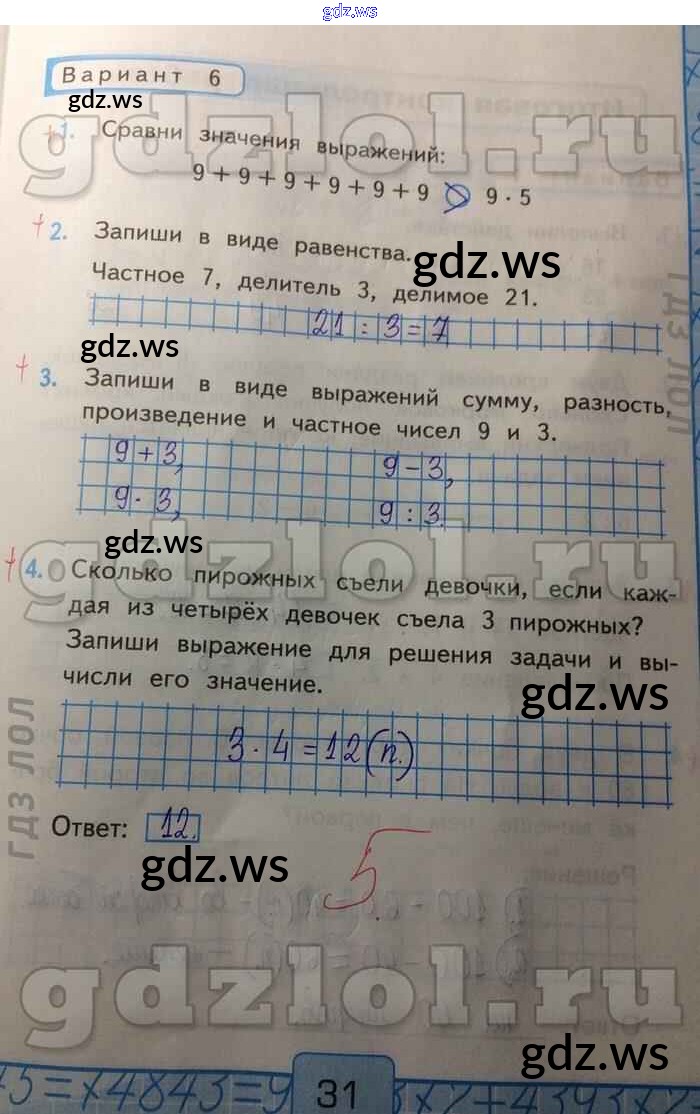 gdz.ws
Вариант 6
gdz.ws
gdzlol.ru
+ 1. Сравни значения выражений:
9 + 9 + 9 + 9 + 9 + 9 > 9 · 5
+ 2. Запиши в виде равенства.
gdz.ws
Частное 7, делитель 3, делимое 21.
21 : 3 = 7
gdz.ws
ГДЗ ЛОЛ
+ 3. Запиши в виде выражений сумму, разность,
произведение и частное чисел 9 и 3.
9 + 3, 9 – 3,
9 · 3, 9 : 3.
gdz.ws
gdzlol.ru
+ 4. Сколько пирожных съели девочки, если каж-
дая из четырёх девочек съела 3 пирожных?
Запиши выражение для решения задачи и вы-
числи его значение.
gdz.ws
3 · 4 = 12 (п.)
ГДЗ ЛОЛ
Ответ: 12.
5
gdz.ws
gdzlol.ru
gdz.ws
31